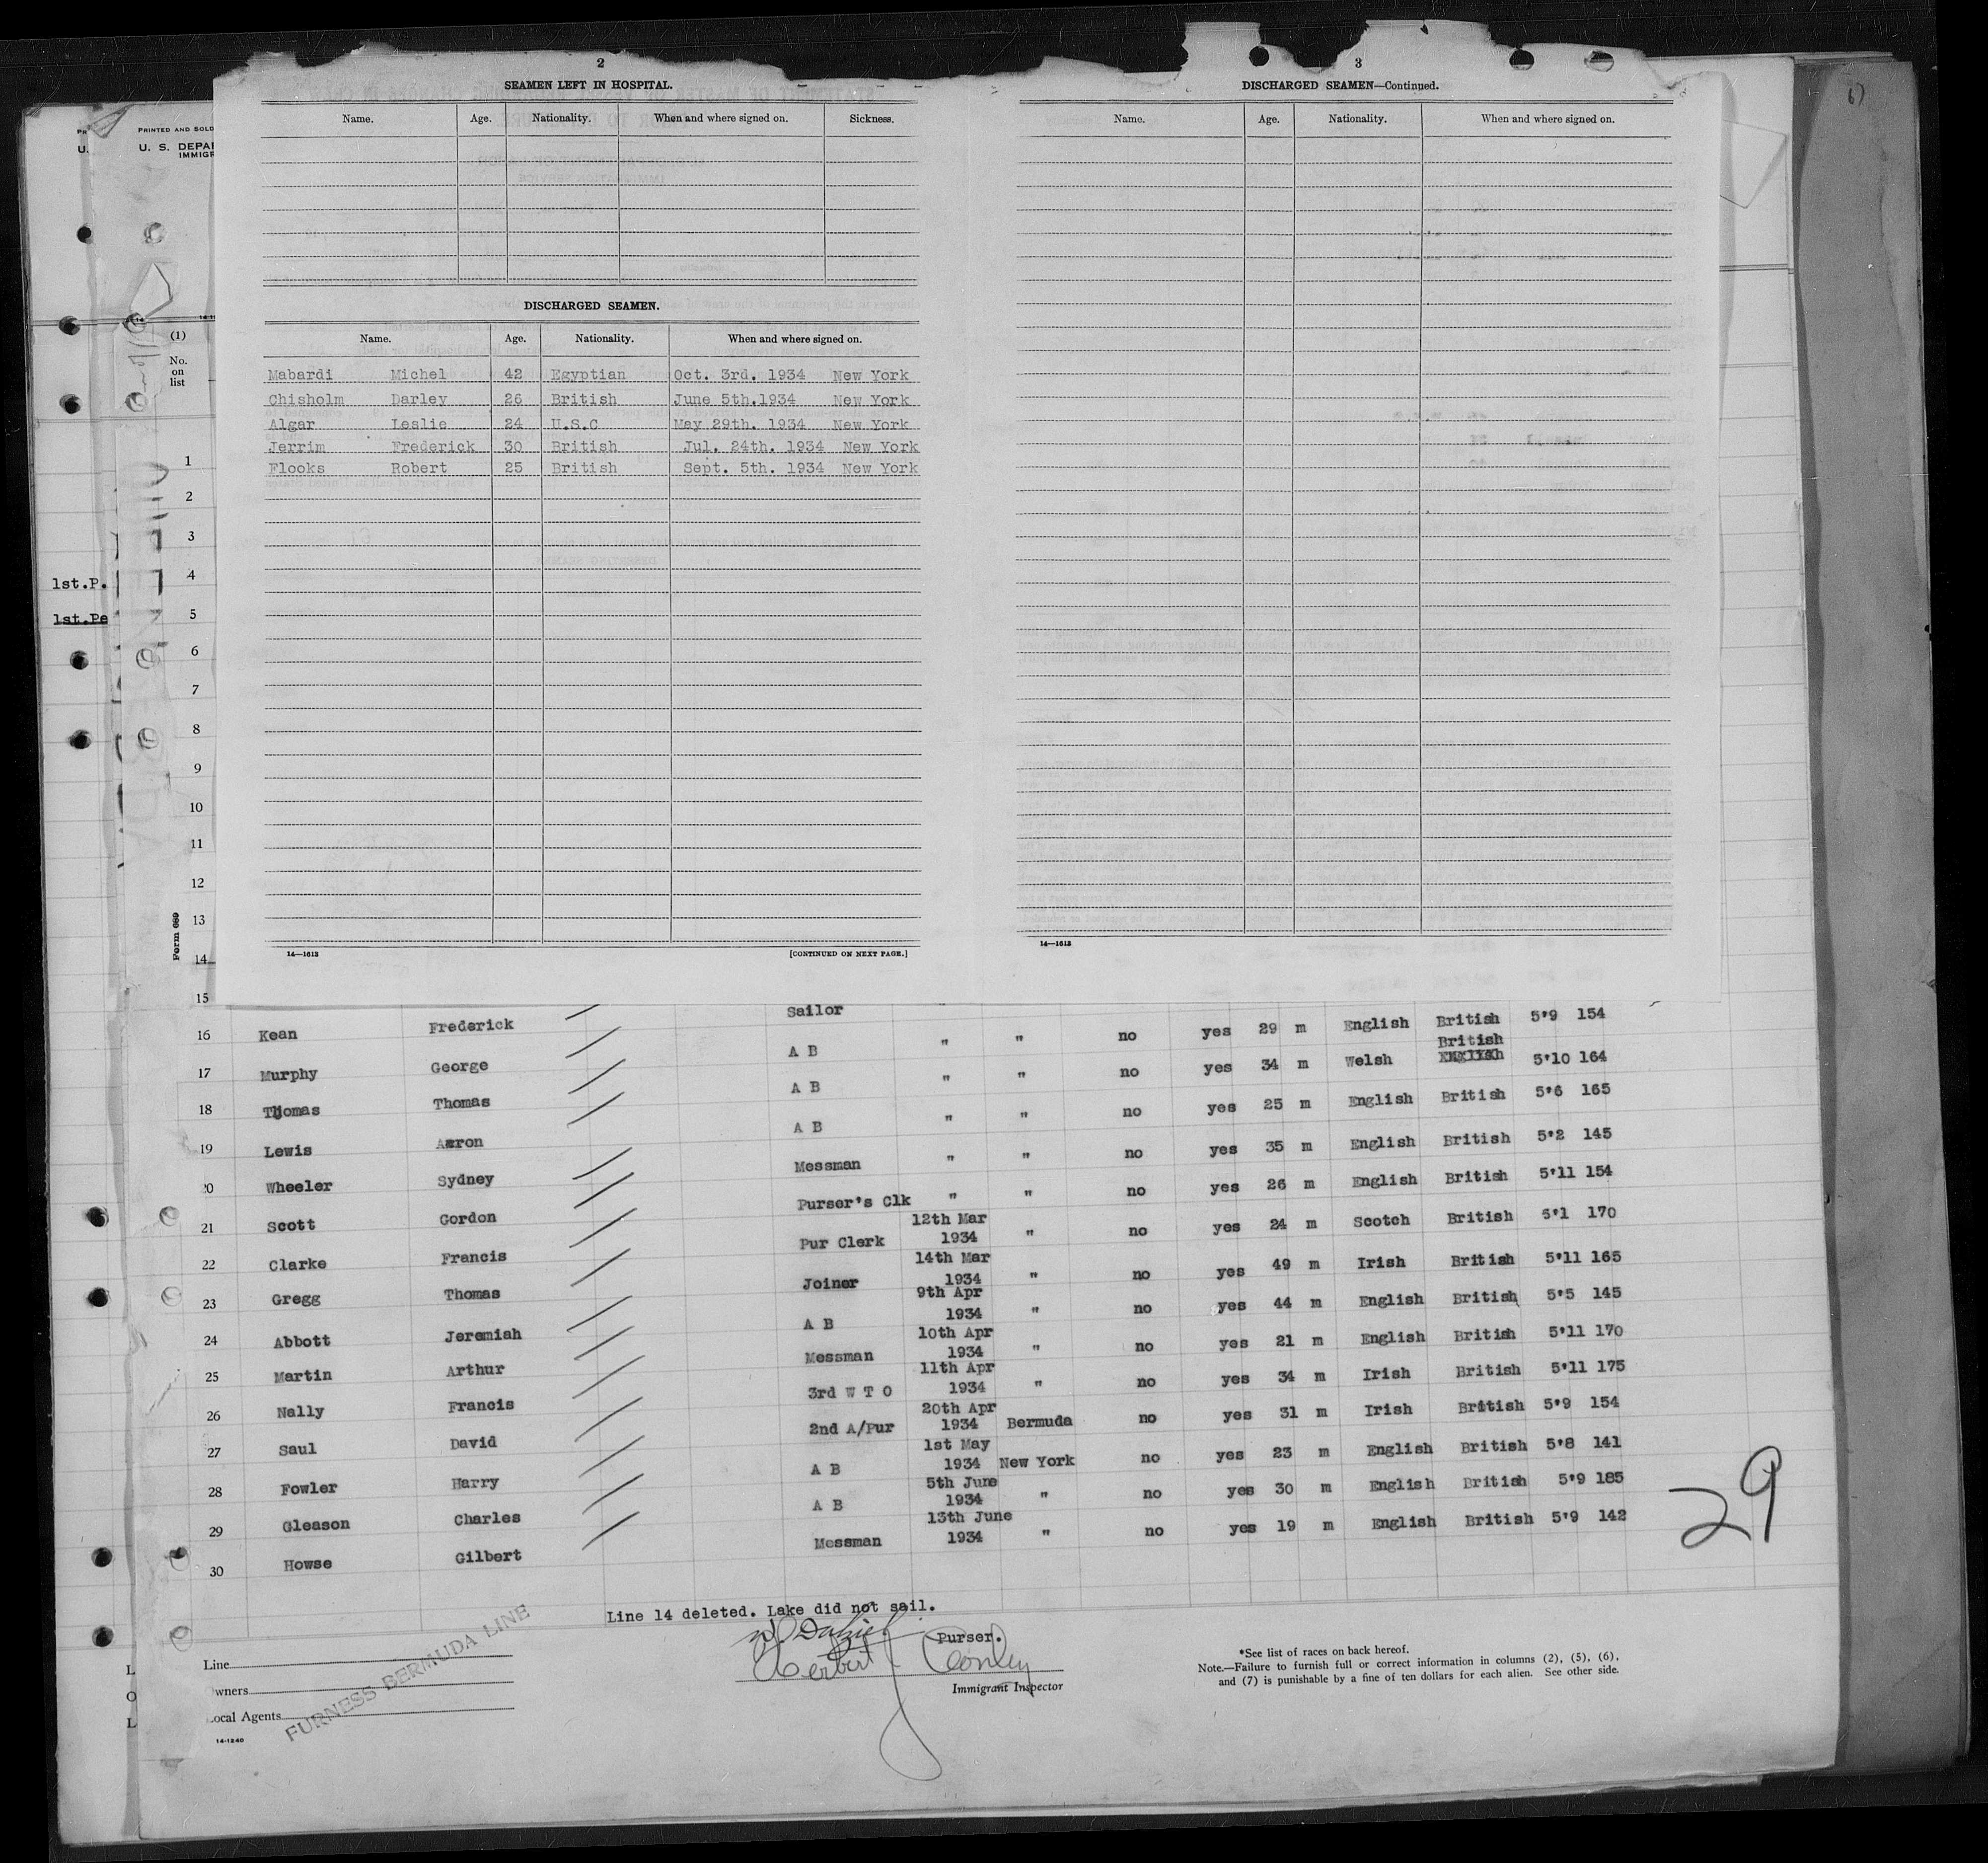 2
SEAMEN LEFT IN HOSPITAL.
Name. Age. Nationality. When and where signed on. Sickness.
DISCHARGED SEAMEN.
Name. Age. Nationality. When and where signed on.
Mabardi Michel 42 Egyptian Oct. 3rd. 1934 New York
Chisholm Darley 26 British June 5th.1934 New York
Algar Leslie 24 U.S.C May 29th. 1934 New York
Jerrim Frederick 30 British Jul. 24th. 1934 New York
Flooks Robert 25 British Sept. 5th. 1934 New York
14—1613 [CONTINUED ON NEXT PAGE.]
3
DISCHARGED SEAMEN—Continued.
Name. Age. Nationality. When and where signed on.
14—1613
PRINTED AND SOLD
U. S. DEPA
IMMIGR
(1)
No.
on
list
1
2
3
1st.P. 4
1st.Pe 5
6
7
8
9
10
11
12
13
Form 689
14
15
Sailor
16 Kean Frederick A B " " no yes 29 m English British 5'9 154
British
17 Murphy George A B " " no yes 34 m Welsh 5'10 164
18 Thomas Thomas A B " " no yes 25 m English British 5'6 165
19 Lewis Aaron Messman " " no yes 35 m English British 5'2 145
20 Wheeler Sydney Purser's Clk " " no yes 26 m English British 5'11 154
21 Scott Gordon Pur Clerk 12th Mar 1934 " no yes 24 m Scotch British 5'1 170
22 Clarke Francis Joiner 14th Mar 1934 " no yes 49 m Irish British 5'11 165
23 Gregg Thomas A B 9th Apr 1934 " no yes 44 m English British 5'5 145
24 Abbott Jeremiah Messman 10th Apr 1934 " no yes 21 m English British 5'11 170
25 Martin Arthur 3rd W T O 11th Apr 1934 " no yes 34 m Irish British 5'11 175
26 Nally Francis 2nd A/Pur 20th Apr 1934 Bermuda no yes 31 m Irish British 5'9 154
27 Saul David A B 1st May 1934 New York no yes 23 m English British 5'8 141
28 Fowler Harry A B 5th June 1934 " no yes 30 m English British 5'9 185
29 Gleason Charles Messman 13th June 1934 " no yes 19 m English British 5'9 142
30 Howse Gilbert
29
Line 14 deleted. Lake did not sail.
Purser.
Herbert Conley
Immigrant Inspector
Line
wners
ocal Agents
FURNESS BERMUDA LINE
14-1240
*See list of races on back hereof.
Note.—Failure to furnish full or correct information in columns (2), (5), (6),
and (7) is punishable by a fine of ten dollars for each alien. See other side.